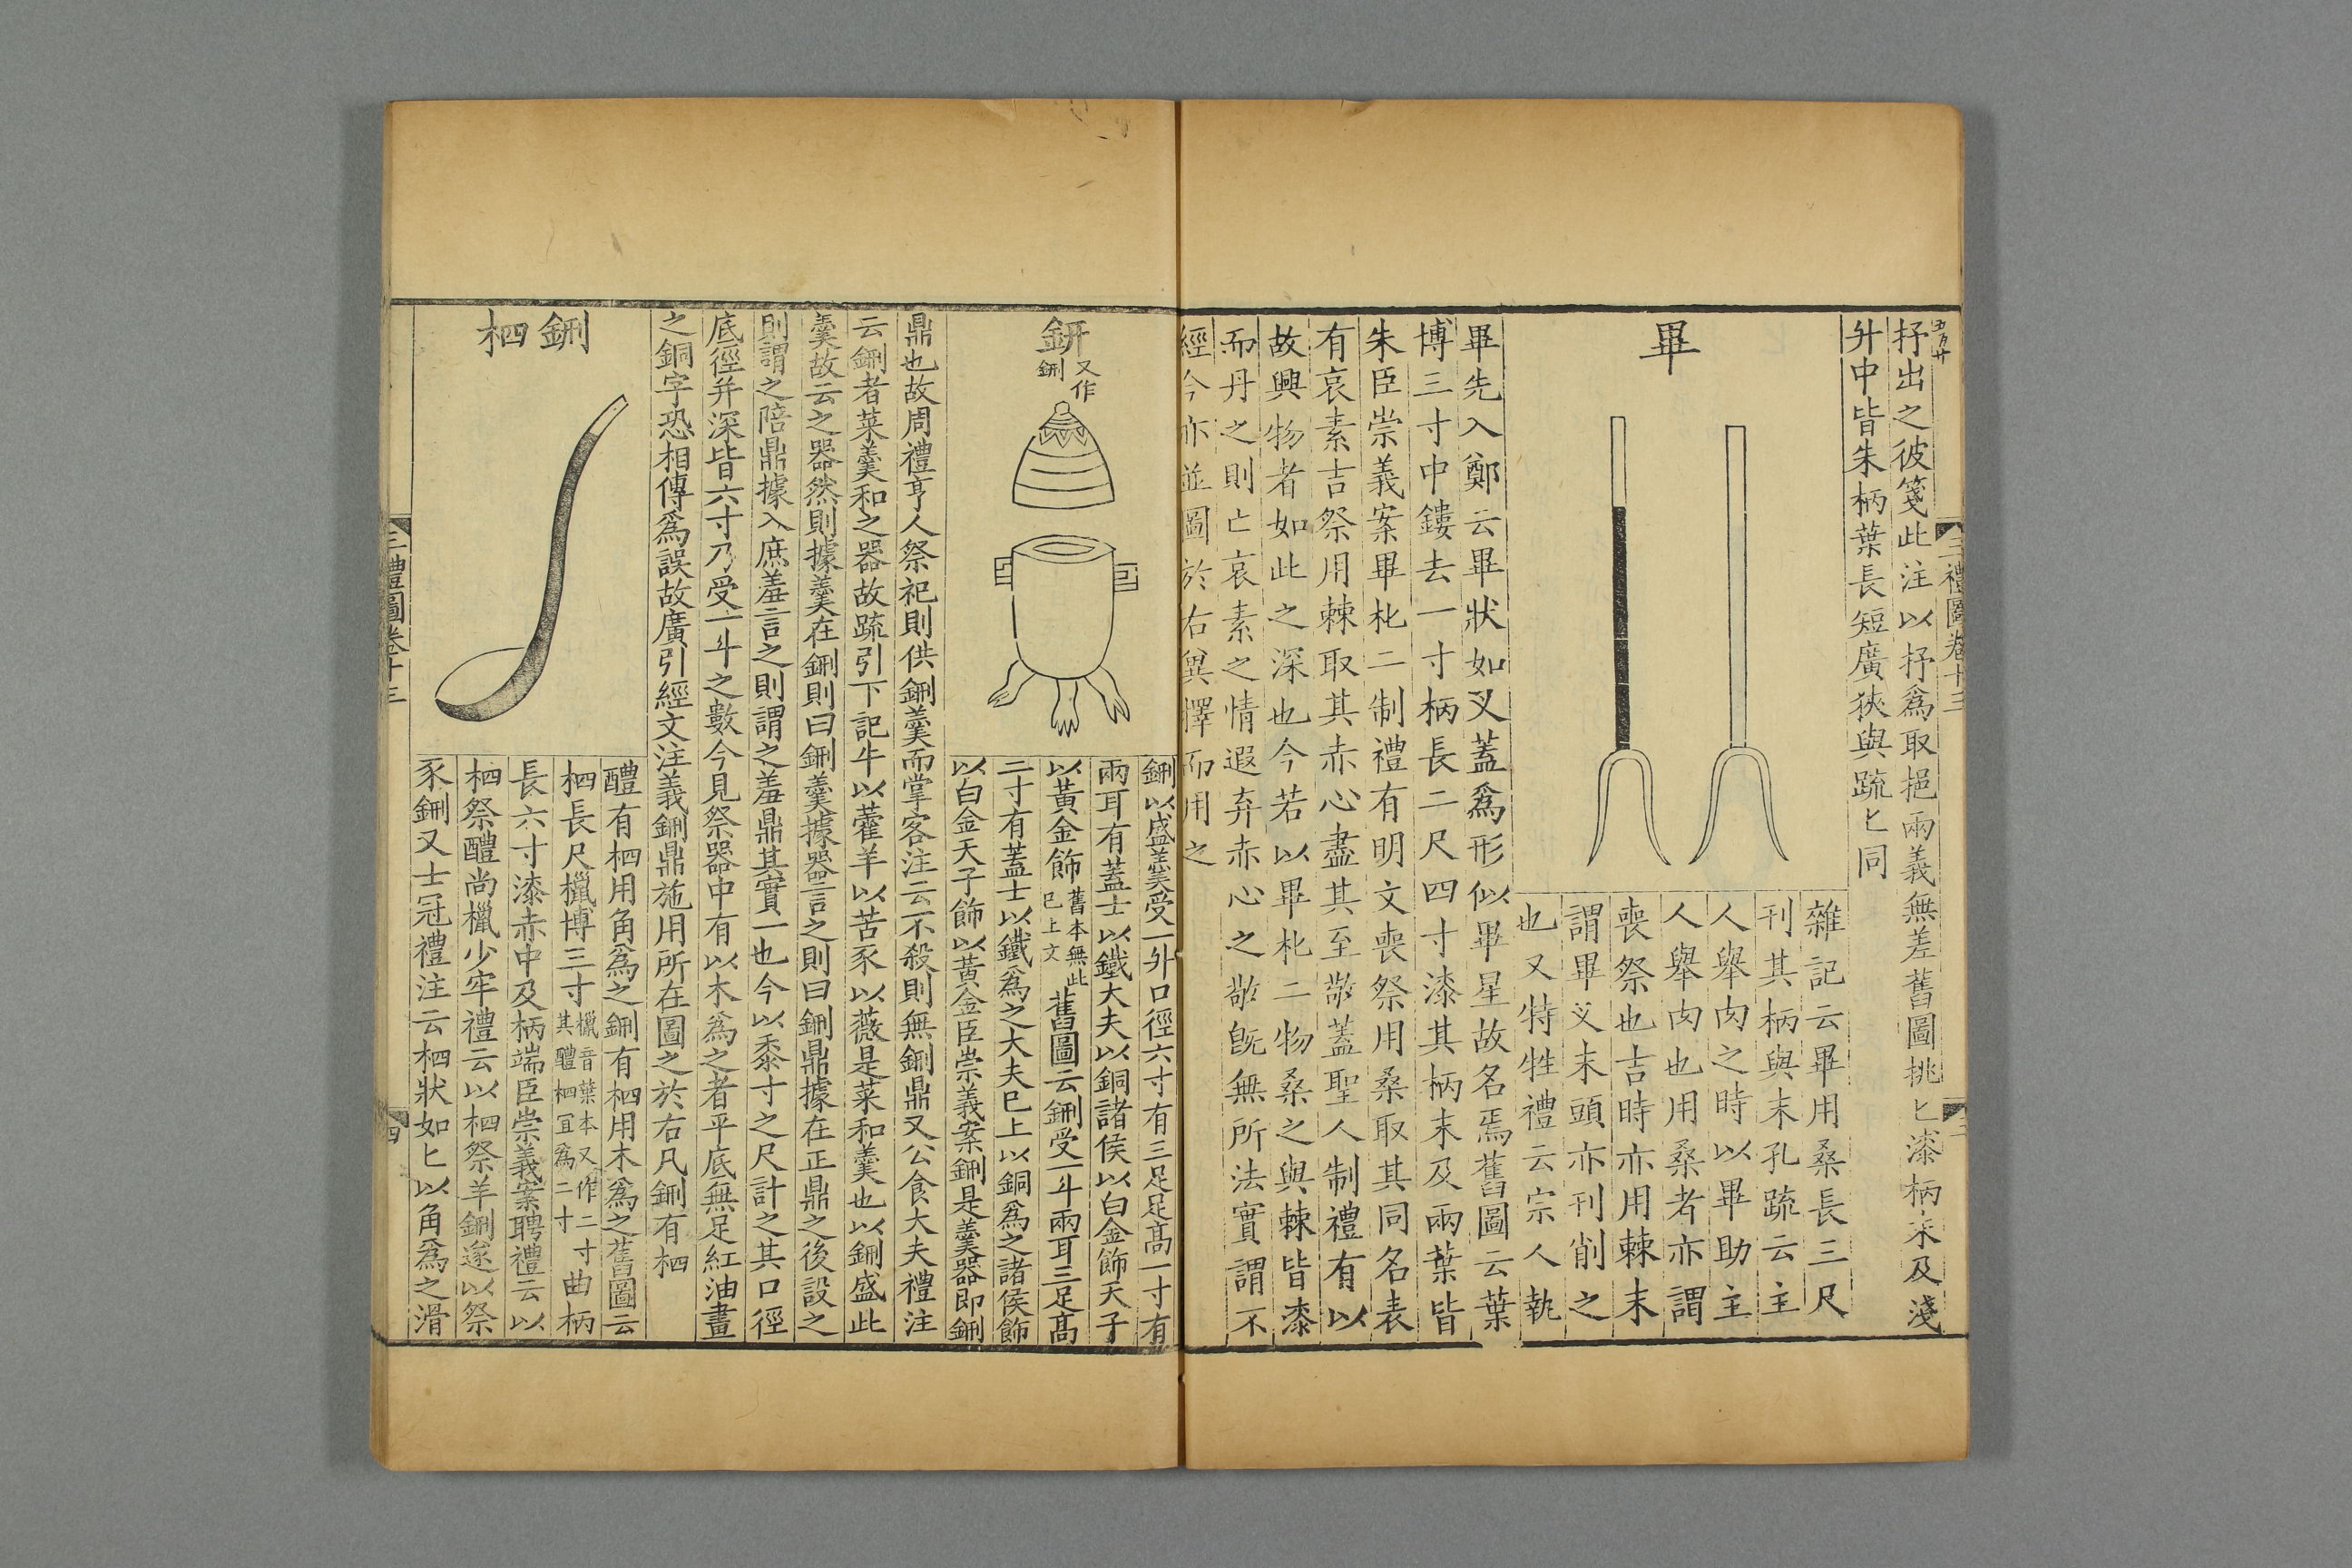 抒出之彼箋此注以抒爲取挹兩義無差舊圖挑匕漆柄末及淺
升中皆朱柄葉長短廣狹與疏匕同
畢
雜記云畢用桑長三尺
刊其柄與末孔疏云主
人舉肉之時以畢助主
人舉肉也用桑者亦謂
喪祭也吉時亦用棘末
謂畢义末頭亦刊削之
也又特牲禮云宗人執
畢先入鄭云畢狀如叉蓋爲形似畢星故名焉舊圖云葉
博三寸中鏤去一寸柄長二尺四寸漆其柄末及兩葉皆
朱臣崇義案畢朼二制禮有明文喪祭用桑取其同名表
有哀素吉祭用棘取其赤心盡其至敬蓋聖人制禮有以
故興物者如此之深也今若以畢朼二物桑之與棘皆漆
而丹之則亡哀素之情遐弃赤心之敬旣無所法實謂不
經今亦並圖於右兾擇而用之
三禮圖卷十三
鈃又作鉶
鉶以盛羹受一升口徑六寸有三足足高一寸有
兩耳有蓋士以鐵大夫以銅諸侯以白金飾天子
以黃金飾舊本無此已上文舊圖云鉶受一斗兩耳三足高
二寸有蓋士以鐵爲之大夫已上以銅爲之諸侯飾
以白金天子飾以黃金臣崇義案鉶是羹器即鉶
鼎也故周禮亨人祭祀則供鉶羹而掌客注云不殺則無鉶鼎又公食大夫禮注
云鉶者菜羹和之器故疏引下記牛以藿羊以苦豕以薇是菜和羹也以鉶盛此
羹故云之器然則據羹在鉶則曰鉶羹據器言之則曰鉶鼎據在正鼎之後設之
則謂之陪鼎據入庶羞言之則謂之羞鼎其實一也今以黍寸之尺計之其口徑
底徑并深皆六寸乃受一斗之數今見祭器中有以木爲之者平底無足紅油畫
之銅字恐相傳爲誤故廣引經文注義鉶鼎施用所在圖之於右凡鉶有柶
鉶柶
醴有柶用角爲之鉶有柶用木爲之舊圖云
柶長尺櫼博三寸櫼音葉本又作二寸其醴柶冝爲二寸曲柄
長六寸漆赤中及柄端臣崇義案聘禮云以
柶祭醴尚櫼少牢禮云以柶祭羊鉶遂以祭
豕鉶又士冠禮注云柶狀如匕以角爲之滑
三禮圖卷十三
四